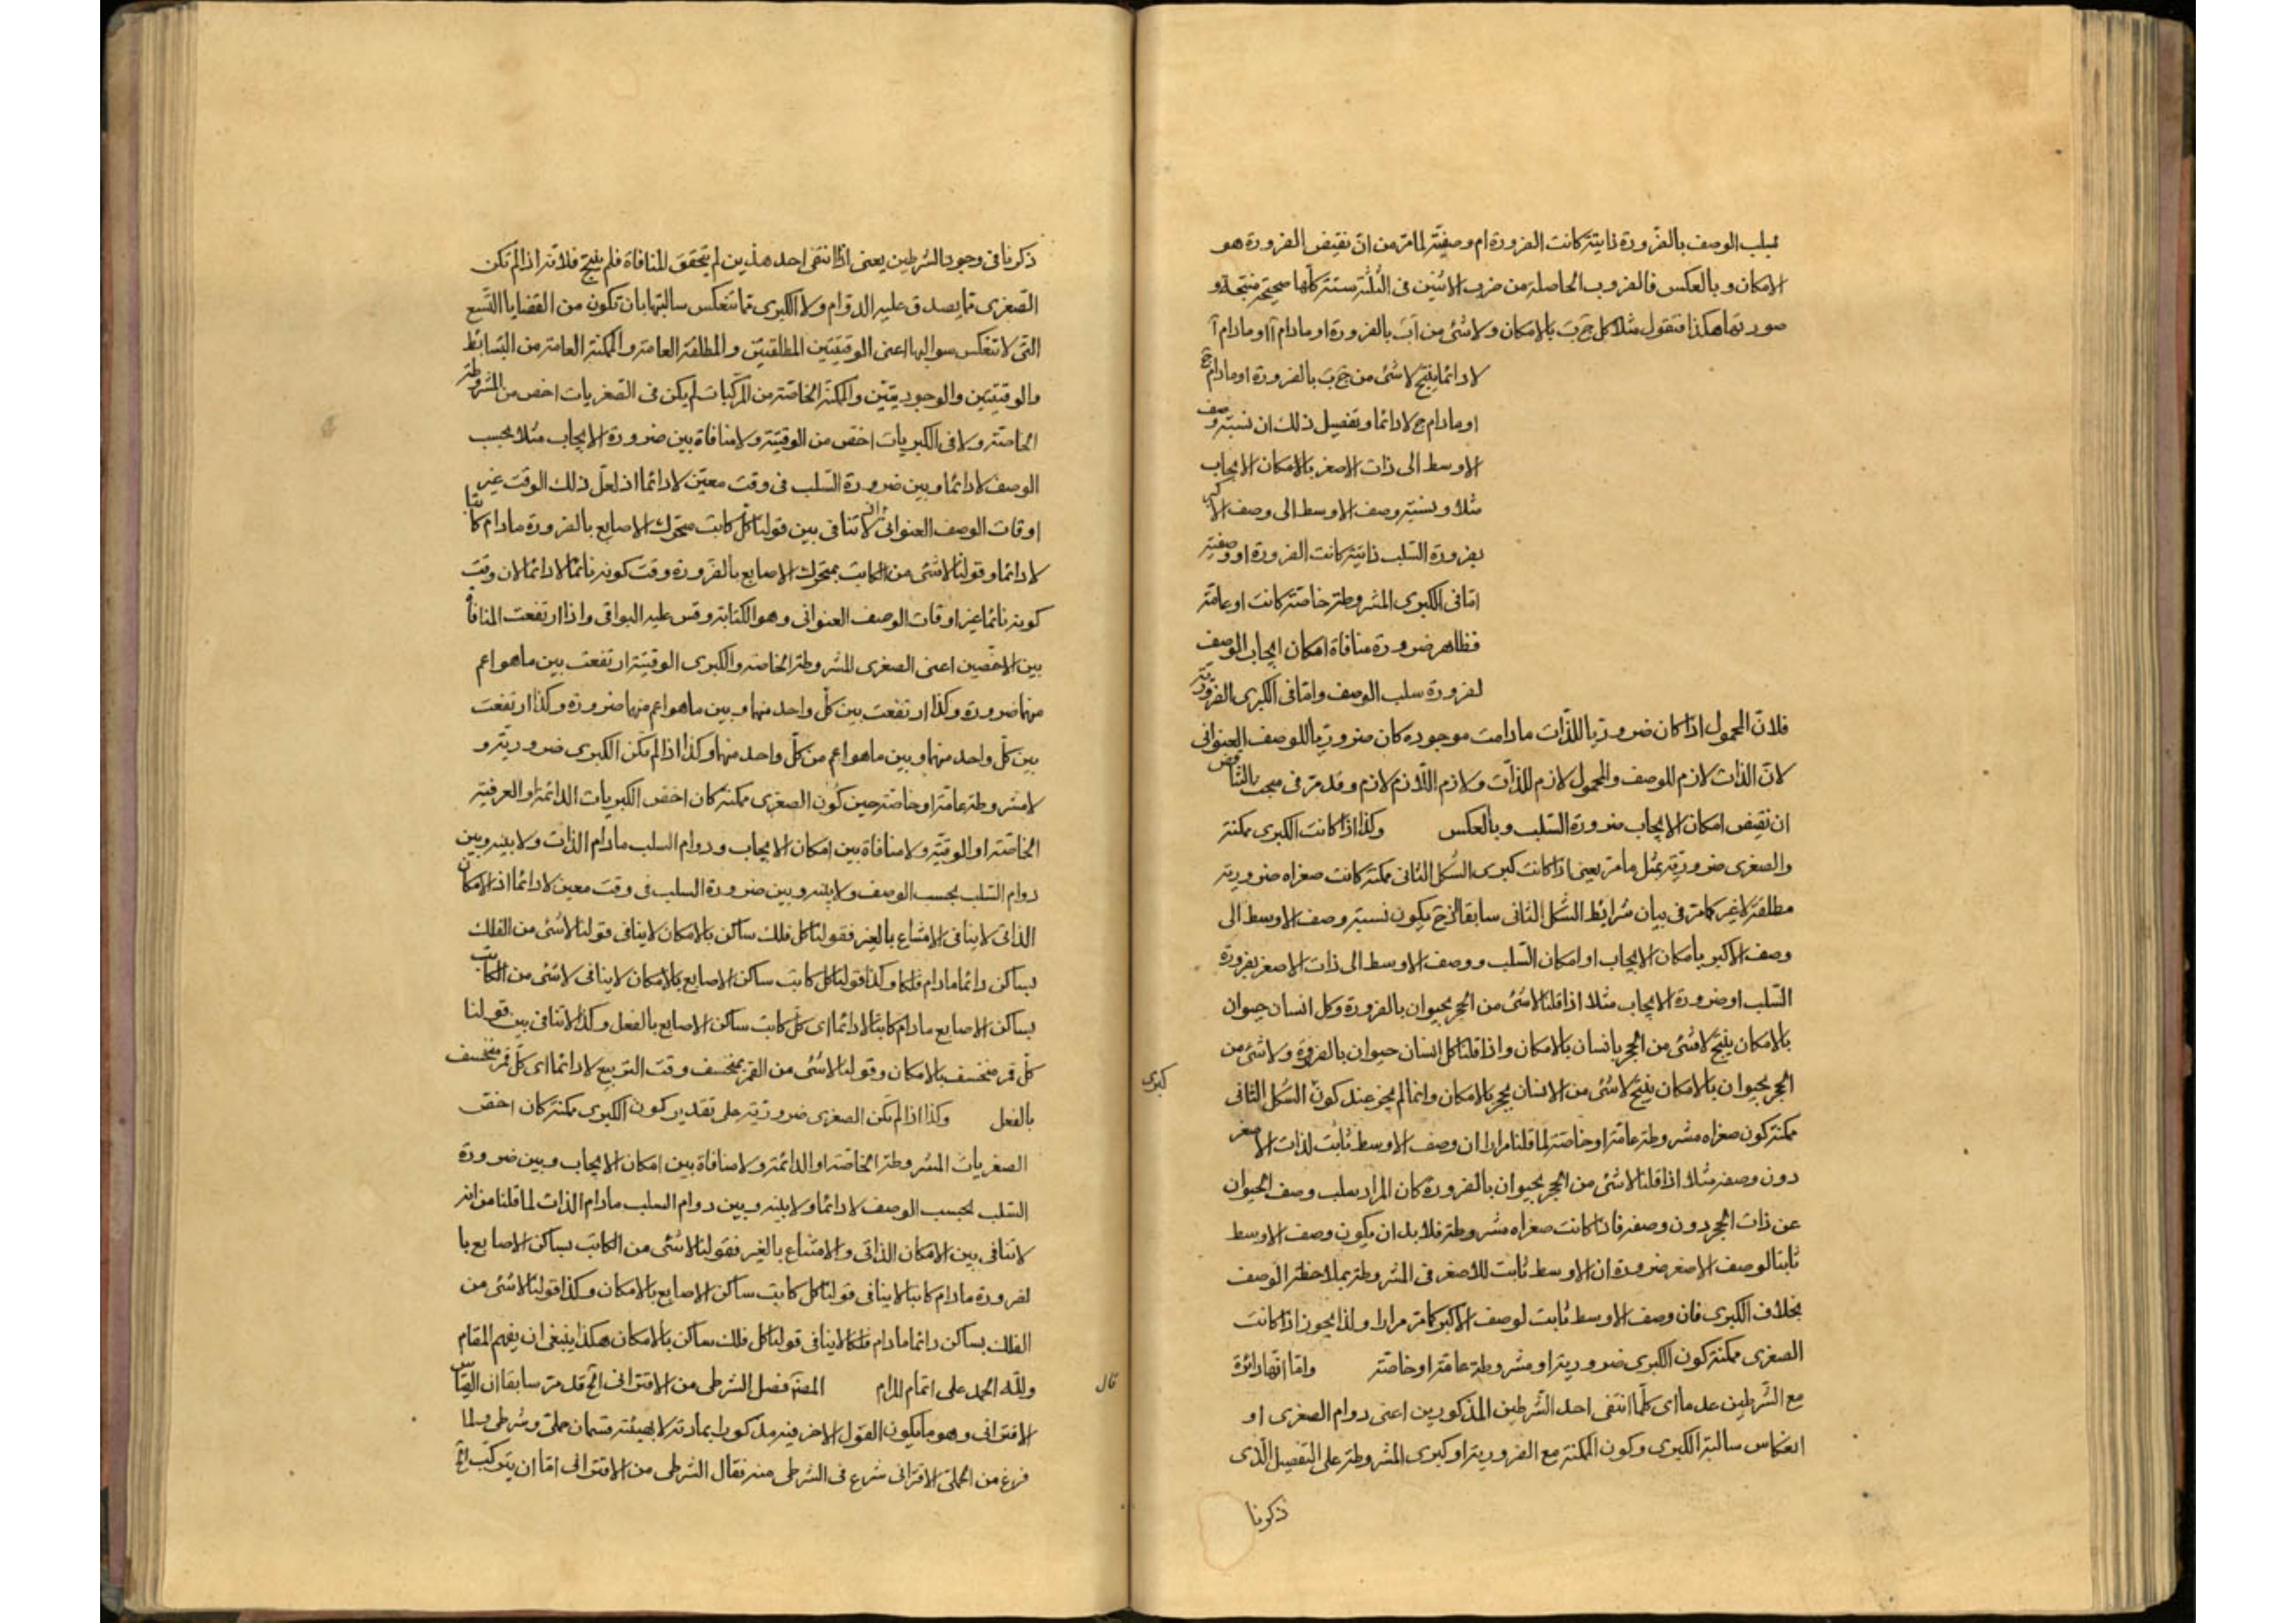 بسلب الوصف بالضّرورة ذاتيّة كانت الضرورة ام وصفيّة لما مرّ من انّ نقيض الضرورة هو
الامكان و بالعكس فالضروب الحاصلة من ضرب الاثنين فى الثلثة ستة كلّها صحيحة منتجة و
صورتها هكذا فتقول مثلا كل ج ب بالامكان ولا شئ من آ ب بالضرورة او مادام آ او مادام آ
لا دائما ينتج لا شئ من ج ب بالضرورة او مادام ج
او مادام ج لا دائما و تفصيل ذلك ان نسبة وصف
الاوسط الى ذات الاصغر بالامكان الايجاب
مثلا و نسبة وصف الاوسط الى وصف الاكبر
بضرورة السّلب ذاتيّة كانت الضرورة او وصفيّة
امّا فى الكبرى المشروطة خاصّة كانت او عامّة
فظاهر ضرورة منافاة امكان ايجاب الوصف
لضرورة سلب الوصف وامّا فى الكبرى الضروريّة
فلانّ المحمول اذا كان ضروريّا للذّات مادامت موجوده كان ضروريّا للوصف العنوانى
لانّ الذات لازم للوصف والمحمول لازم للذّات ولازم اللّازم لازم وقد مرّ فى مبحث التناقض
ان نقيض امكان الايجاب ضرورة السّلب و بالعكس وكذا اذا كانت الكبرى ممكنة
والصغرى ضروريّة بمثل ما مرّ يعنى اذا كانت كبرى الشكل الثانى ممكنة كانت صغراه ضرورية
مطلقة لا غير كما مرّ فى بيان شرايط الشّكل الثانى سابقا فح يكون نسبة وصف الاوسط الى
وصف الاكبر بامكان الايجاب او امكان السّلب ووصف الاوسط الى ذات الاصغر بضرورة
السّلب او ضرورة الايجاب مثلا اذا قلنا لا شئ من الحجر بحيوان بالضرورة وكل انسان حيوان
بالامكان ينتج لا شئ من الحجر بانسان بالامكان واذا قلنا كل انسان حيوان بالضرورة ولا شئ من
الحجر بحيوان بالامكان ينتج لا شئ من الانسان بحجر بالامكان وانما لم يجز عند كون الشكل الثانى
كبرى
ممكنة كون صغراه مشروطة عامّة او خاصّة لما قلنا مرارا ان وصف الاوسط ثابت لذات الاصغر
دون وصفه مثلا اذا قلنا لا شئ من الحجر بحيوان بالضرورة كان المراد سلب وصف الحيوان
عن ذات الحجر دون وصفه فاذا كانت صغراه مشروطة فلابد ان يكون وصف الاوسط
ثابتا لوصف الاصغر ضرورة ان الاوسط ثابت للاصغر فى المشروطة بملاحظة الوصف
بخلاف الكبرى فان وصف الاوسط ثابت لوصف الاكبر كما مرّ مرارا ولذا يجوز اذا كانت
الصغرى ممكنة كون الكبرى ضرورية او مشروطة عامّة او خاصّة وامّا انّها دائرة
مع الشّرطين عدما اى كلّما انتفى احد الشّرطين المذكورين اعنى دوام الصغرى او
انعكاس سالبة الكبرى وكون الممكنة مع الضرورية او كبرى المشروطة على التفصيل الّذى
ذكرنا
ذكرنا فى وجود الشرطين يعنى اذا انتفى احد هذين لم يتحقق المنافاة فلم ينتج فلانّه اذا لم تكن
الصّغرى ممّا يصدق عليه الدوام ولا الكبرى ممّا تنعكس سالبتها بان تكون من القضايا التّسع
الّتى لا تنعكس سوالبها اعنى الوقتيّتين المطلقتين والمطلقة العامة والممكنة العامة من البسائط
والوقتيّتين والوجوديّتين والممكنة الخاصّة من المركّبات لم يكن فى الصّغريات اخص من المشروطة
الخاصّة ولا فى الكبريات اخصّ من الوقتيّة ولا منافاة بين ضرورة الايجاب مثلا بحسب
الوصف لا دائما و بين ضرورة السّلب فى وقت معيّن لا دائما اذ لعلّ ذلك الوقت غير
اوقات الوصف العنوانى لا تنافى بين قولنا كلّ كاتب متحرّك الاصابع بالضرورة مادام كاتبا
لا دائما و قولنا لا شئ من الكاتب بمتحرّك الاصابع بالضرورة وقت كونه نائما لا دائما لان وقت
كونه نائما غير اوقات الوصف العنوانى وهو الكتابة وقس عليه البواقى واذا ارتفعت المنافاة
بين الاخصّين اعنى الصغرى المشروطة الخاصة والكبرى الوقتيّة ارتفعت بين ما هو اعم
منهما ضرورة وكذا ارتفعت بين كلّ واحد منهما و بين ما هو اعم منهما ضرورة وكذا ارتفعت
بين كلّ واحد منهما و بين ما هو اعم من كلّ واحد منهما وكذا اذا لم تكن الكبرى ضروريّة و
لا مشروطة عامّة او خاصّة حين كون الصغرى ممكنة كان اخصّ الكبريات الدائمة او العرفية
الخاصّة او الوقتيّة ولا منافاة بين امكان الايجاب و دوام السلب مادام الذات ولا بينه و بين
دوام السّلب بحسب الوصف ولا بينه و بين ضرورة السلب فى وقت معين لا دائما اذ الامكان
الذاتى لا ينافى الامتناع بالغير فقولنا كل فلك ساكن بالامكان لا ينافى قولنا لا شئ من الفلك
بساكن دائما مادام فلكا وكذا قولنا كل كاتب ساكن الاصابع بالامكان لا ينافى لا شئ من الكاتب
بساكن الاصابع مادام كاتبا لا دائما اى كلّ كاتب ساكن الاصابع بالفعل وكذا لا تنافى بين قولنا
كلّ قمر منخسف بالامكان و قولنا لا شئ من القمر بمنخسف وقت التربيع لا دائما اى كلّ قمر منخسف
بالفعل وكذا اذا لم تكن الصغرى ضروريّة على تقدير كون الكبرى ممكنة كان اخصّ
الصغريات المشروطة الخاصّة او الدائمة ولا منافاة بين امكان الايجاب و بين ضرورة
السّلب بحسب الوصف لا دائما ولا بينه و بين دوام السلب مادام الذات لما قلنا من انه
لا تنافى بين الامكان الذاتى والامتناع بالغير فقولنا لا شئ من الكاتب بساكن الاصابع با
لضرورة مادام كاتبا لا ينافى قولنا كل كاتب ساكن الاصابع بالامكان وكذا قولنا لا شئ من
الفلك بساكن دائما مادام فلكا لا ينافى قولنا كل فلك ساكن بالامكان هكذا ينبغى ان يفهم المقام
وللّه الحمد على اتمام المرام المصنّف فصل الشرطى من الاقترانى الخ قد مرّ سابقا ان القياس
قال
الاقترانى وهو ما يكون القول الاخر فيه مذكورا بمادته لا بهيئته قسمان حملى و شرطى و لما
فرغ من الحملى الاقترانى شرع فى الشرطى منه فقال الشرطى من الاقترانى امّا ان يتركّب الخ